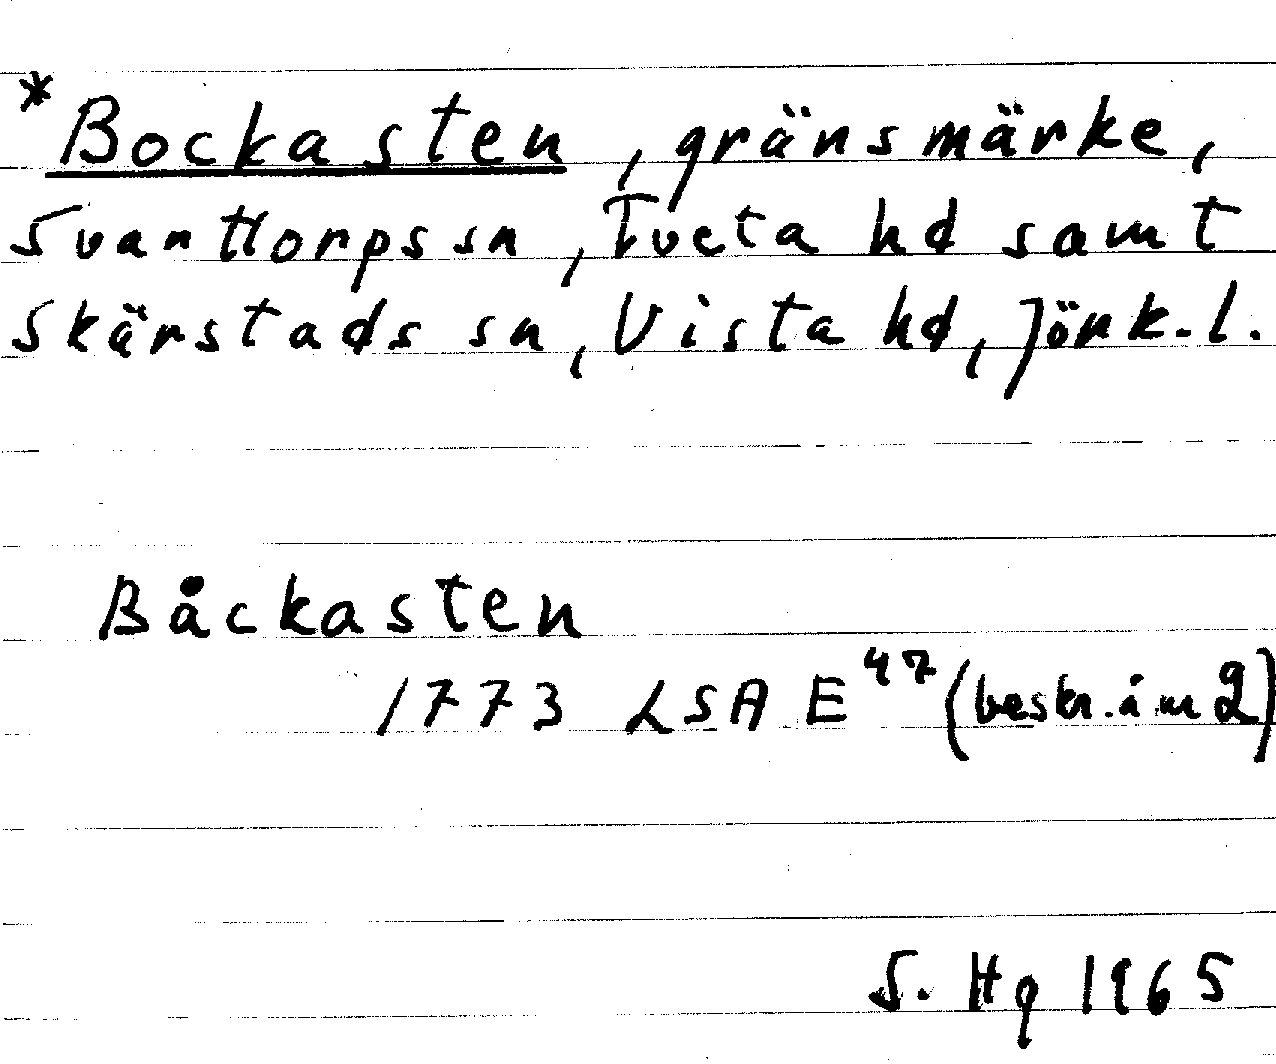 *Bockasten, gränsmärke,
Svarttorps sn, Tveta hd samt
Skärstads sn, Vista hd, Jönk.l.
Båckasten
1773 LSA E 47 (beskr. å m 2)
S. Hg 1965